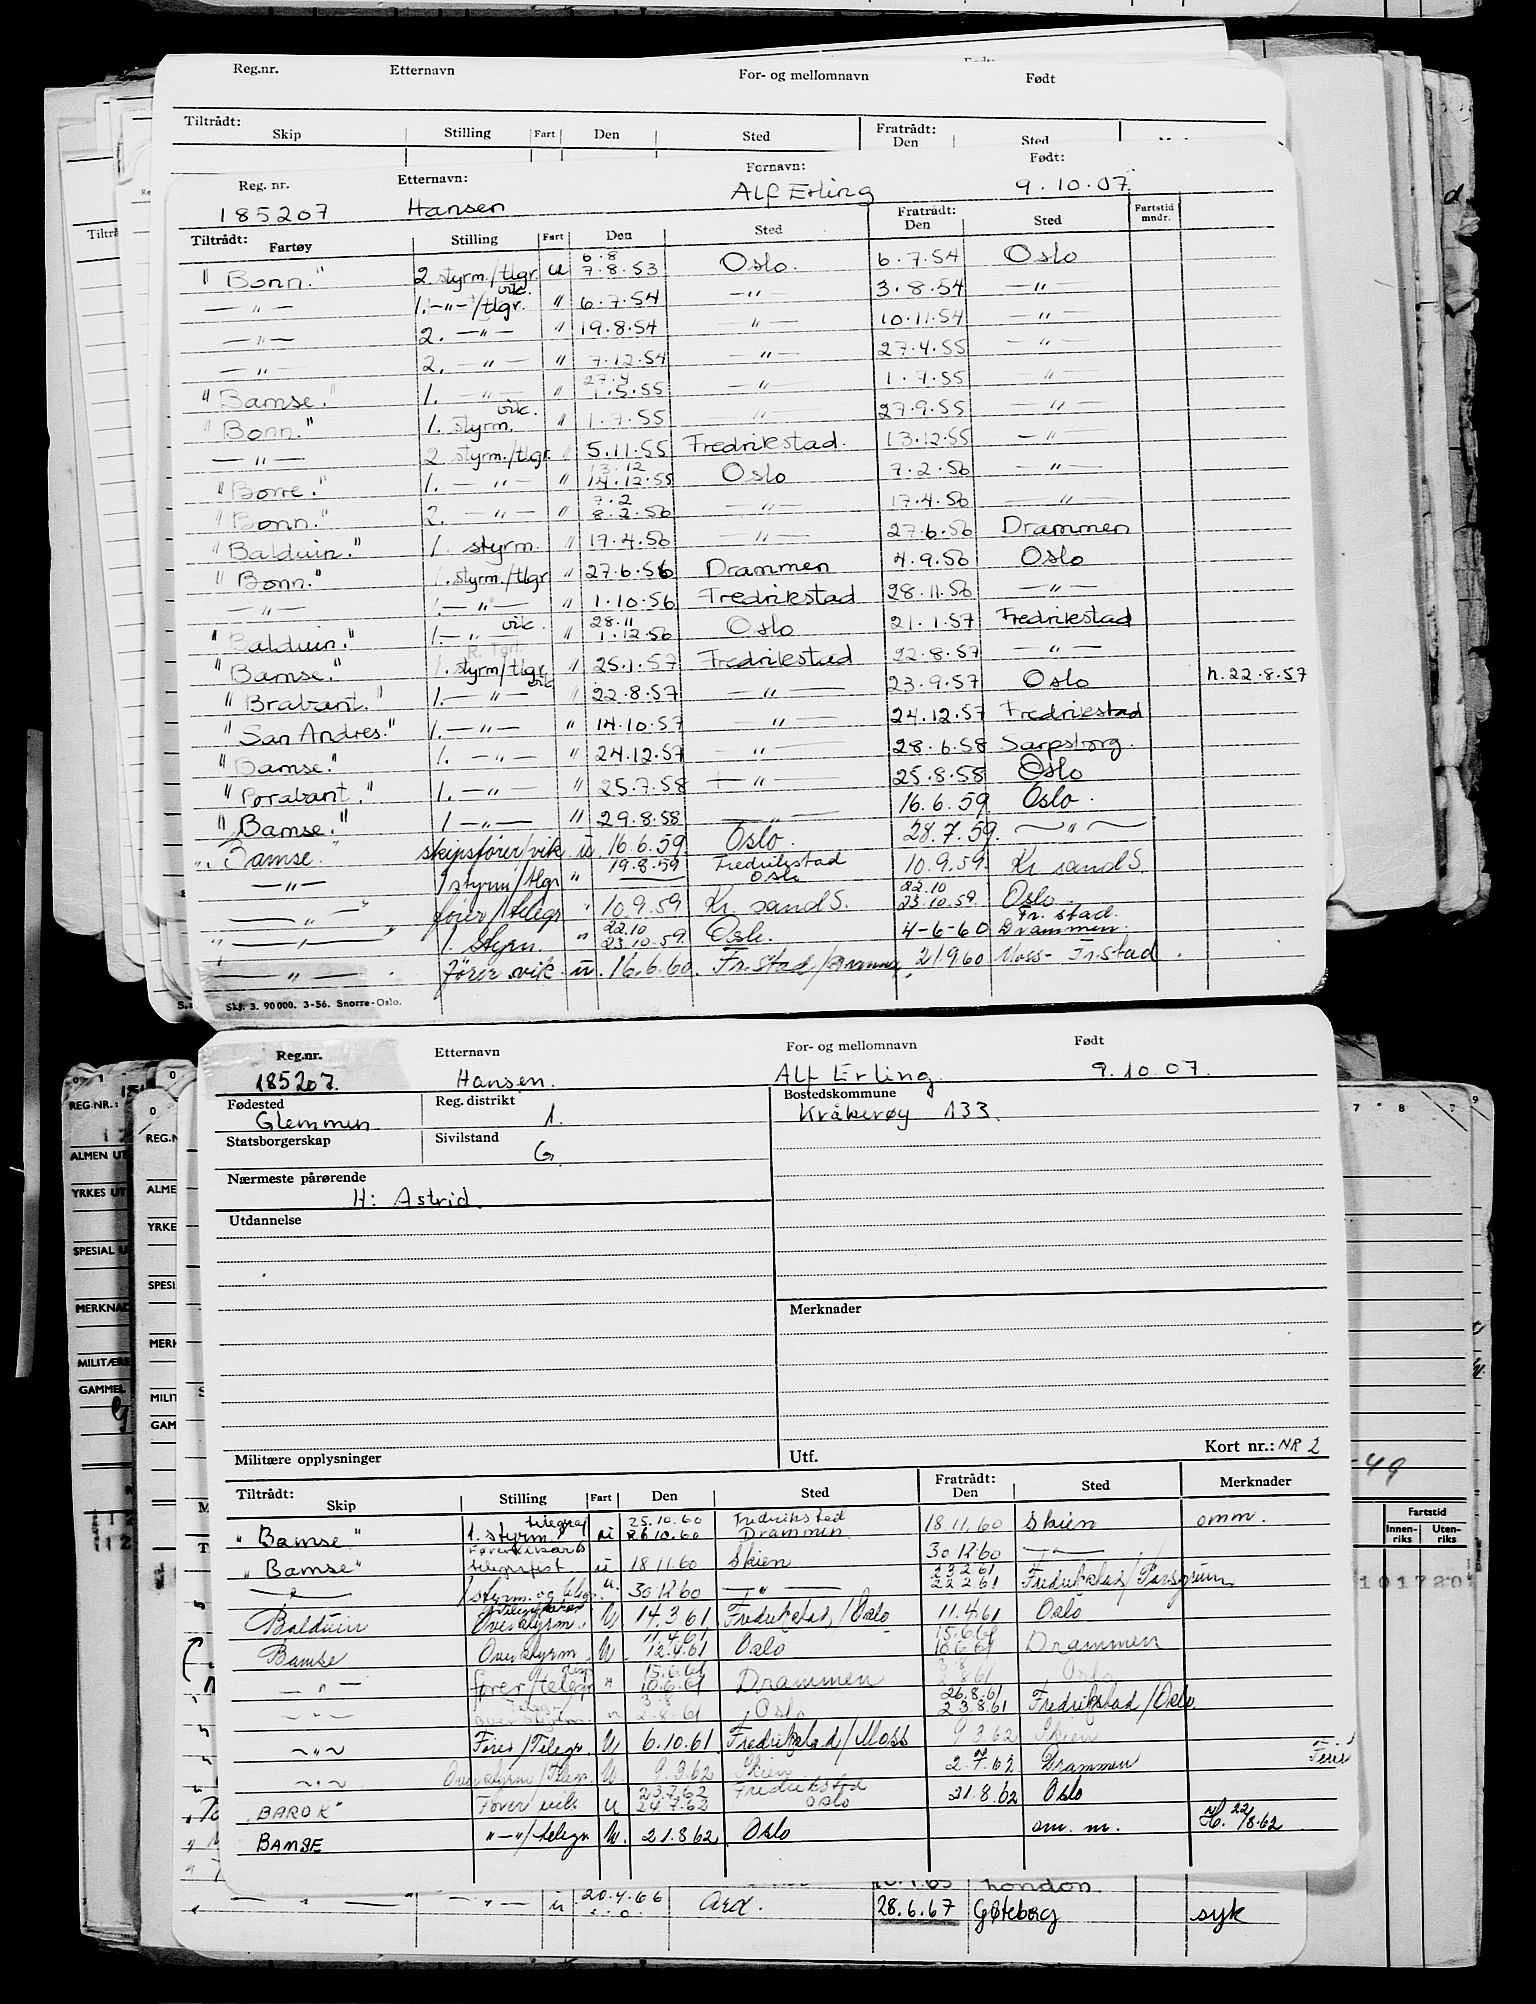 Reg.nr. Etternavn For- og mellomnavn Født
Tiltrådt: Skip Stilling Fart Den Sted Fratrådt: Den Sted
Reg. nr. Etternavn: Fornavn: Født:
185207 Hansen Alf Erling 9.10.07.
Tiltrådt: Fartøy Stilling Fart Den Sted Fratrådt: Den Sted Fartstid mndr.
"Bonn." 2 styrm./tlgr. u 6.8 7.8.53 Oslo. 6.7.54 Oslo
— " — 1. —"— vik. /tlgr. " 6.7.54 — " — 3.8.54 — " —
— " — 2. — " — " 19.8.54 — " — 10.11.54 — " —
— " — 2. — " — " 7.12.54 — " — 27.4.55 — " —
"Bamse." 1. — " — " 27.4 1.5.55 — " — 1.7.55 — " —
"Bonn." 1. styrm. vik. " 1.7.55 — " — 27.9.55 — " —
— " — 2 styrm./tlgr. " 5.11.55 Fredrikstad. 13.12.55 — " —
"Borre." 1. — " — " 13.12 14.12.55 Oslo 7.2.56 — " —
"Bonn." 2. — " — " 7.2 8.2.56 — " — 17.4.56 — " —
"Balduin." 1. styrm. " 17.4.56 — " — 27.6.56 Drammen
"Bonn." 1. styrm./tlgr " 27.6.56 Drammen 4.9.56 Oslo
— " — 1. — " — " 1.10.56 Fredrikstad 28.11.56 — " —
"Balduin." 1. — " — vik. " 28.11 1.12.56 Oslo 21.1.57 Fredrikstad
"Bamse." 1. styrm/tlgr. " 25.1.57 Fredrikstad 22.8.57 — " —
"Brabant." 1. — " — vik " 22.8.57 — " — 23.9.57 Oslo h. 22.8.57
"San Andres." 1. — " — " 14.10.57 — " — 24.12.57 Fredrikstad
"Bamse." 1. — " — " 24.12.57 — " — 28.6.58 Sarpsborg.
"Brabant." 1. — " — " 25.7.58 — " — 25.8.58 Oslo
"Bamse." 1 — " — " 29.8.58 — " — 16.6.59. Oslo.
"Bamse." skipsfører/vik u. 16.6.59. Oslo. 28.7.59. — " —
— " — 1 styrm/tlgr " 19.8.59 Fredrikstad Oslo 10.9.59. Kr. sand S.
— " — fører/telegr " 10.9.59 Kr. sand S. 22.10 23.10.59. Oslo
— " — 1. Styrm. " 22.10 23.10.59. Oslo. 4-6-60 Fr. stad. Drammen.
— " — fører vik. u. 16.6.60. Fr.stad/Drammen. 21.9.60 Moss- Fr.stad
Skj. 3. 90000. 3-56. Snorre-Oslo.
Reg.nr. Etternavn For- og mellomnavn Født
185207. Hansen. Alf Erling. 9.10.07.
Fødested Reg. distrikt Bostedskommune
Glemmen 1. Kråkerøy 133.
Statsborgerskap Sivilstand
G.
Nærmeste pårørende
H: Astrid.
Utdannelse
Merknader
Militære opplysninger Utf. Kort nr.: NR 2
Tiltrådt: Skip Stilling Fart Den Sted Fratrådt: Den Sted Merknader
"Bamse" 1. styrm/ telegraf u 25.10.60 26.10.60 Fredrikstad Drammen. 18.11.60 Skien omm.
"Bamse" telegrafist u 18.11.60 Skien 30.12.60 — " —
— " — 1 styrm. og telegr. u. 30.12.60 — " — 23.2.61 22.2.61 Fredrikstad/Porsgrunn
Balduin Overstyrm. U 14.3.61 Fredrikstad/Oslo 11.4.61 Oslo
Bamse Overstyrm. U 11.4.61 12.4.61 Oslo 15.6.61 10.6.61 Drammen
— " — fører/telegr " 15.6.61 10.6.61 Drammen 3.8 2.8.61 Oslo
— " — overstyrm. " 3.8 2.8.61 Oslo 26.8.61 23.8.61 Fredrikstad/Oslo.
— " — Fører/Telegr. U 6.10.61 Fredrikstad/Moss 9.3.62 Skien
— " — Overstyrm/Telegr. U. 9.3.62 Skien 2.7.62 Drammen Ferie
"BAROK" Fører vik u 23.7.62 24.7.62 Fredrikstad Oslo 21.8.62 Oslo
BAMSE "—"/telegr U. 21.8.62 Oslo om. m. H. 22/8.62
London.
" — " — " — " — u 20.4.66 Ard. 28.6.67 Gøteborg syk
REG.NR.:
ALMEN UT
YRKES UT
SPESIAL U
MERKNAD
MILITÆRE
GAMMEL
-49
Fartstid
Innenriks Utenriks